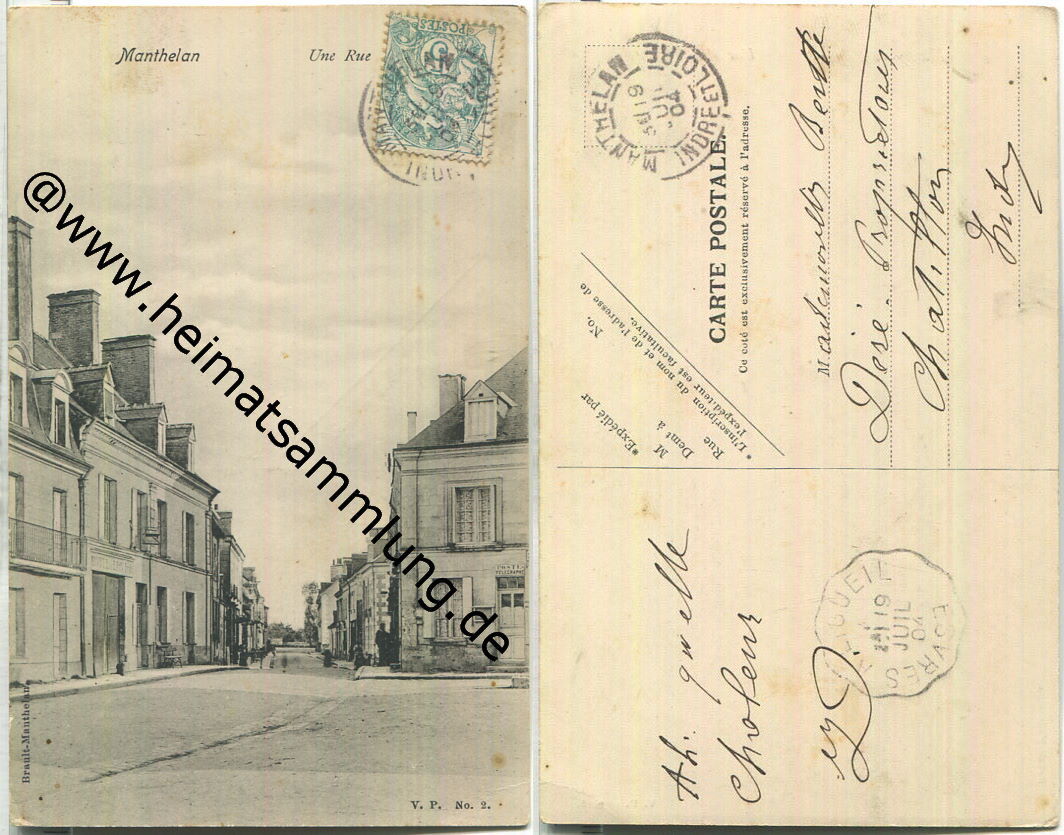 Manthelan
Une Rue
POSTES
5
@www.heimatsammlung.de
POSTES
TELEGRAPHE
Brault-Manthelan
V. P. No. 2.
MANTHELAN
INDRE ET LOIRE
19
JUIL
04
CARTE POSTALE.
Ce coté est exclusivement réservé à l'adresse.
*Expédié par
M
Demt à
Rue
No.
* L'inscription du nom et de l'adresse de
l'expéditeur est facultative.
Mademoiselle Berthe
Désé. Propriétaire
Chatillon
Indre
Ah. quelle
Chaleur
19
JUIL
04